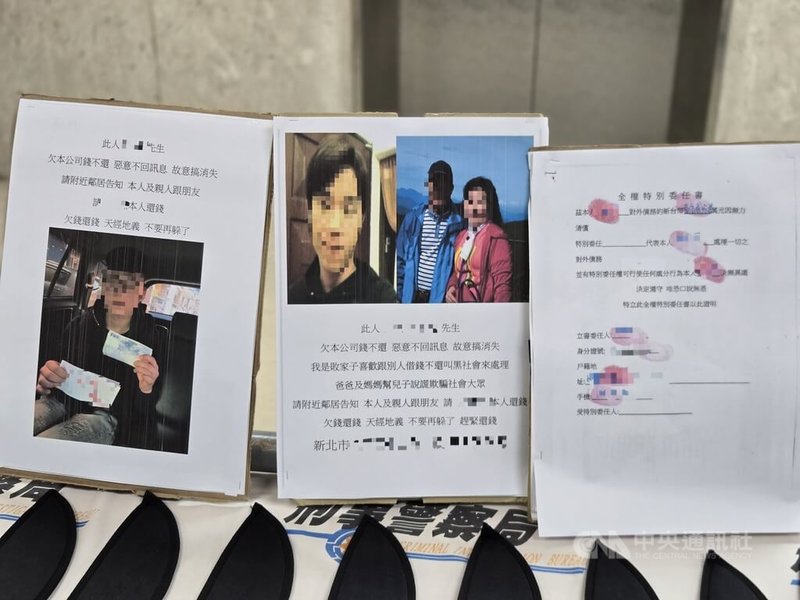 此人 先生
欠本公司錢不還 惡意不回訊息 故意搞消失
請附近鄰居告知 本人及親人跟朋友
請 本人還錢
欠錢還錢 天經地義 不要再躲了
此人 先生
欠本公司錢不還 惡意不回訊息 故意搞消失
我是敗家子喜歡跟別人借錢不還叫黑社會來處理
爸爸及媽媽幫兒子說謊欺騙社會大眾
請附近鄰居告知 本人及親人跟朋友 請 本人還錢
欠錢還錢 天經地義 不要再躲了 趕緊還錢
新北市
全權特別委任書
茲本人 對外債務約新台幣 萬元因無力
清償
特別委任 代表本人 處理一切之
對外債務
並有特別委任權可行使任何處分行為本人 決無異議
決定遵守 唯恐口說無憑
特立此全權特別委任書以此證明
立書委任人:
身分證號:
戶籍地
址:
手機:
受特別委任人:
刑事警察局
CRIMINAL INVESTIGATION BUREAU
中央通訊社
THE CENTRAL NEWS AGENCY